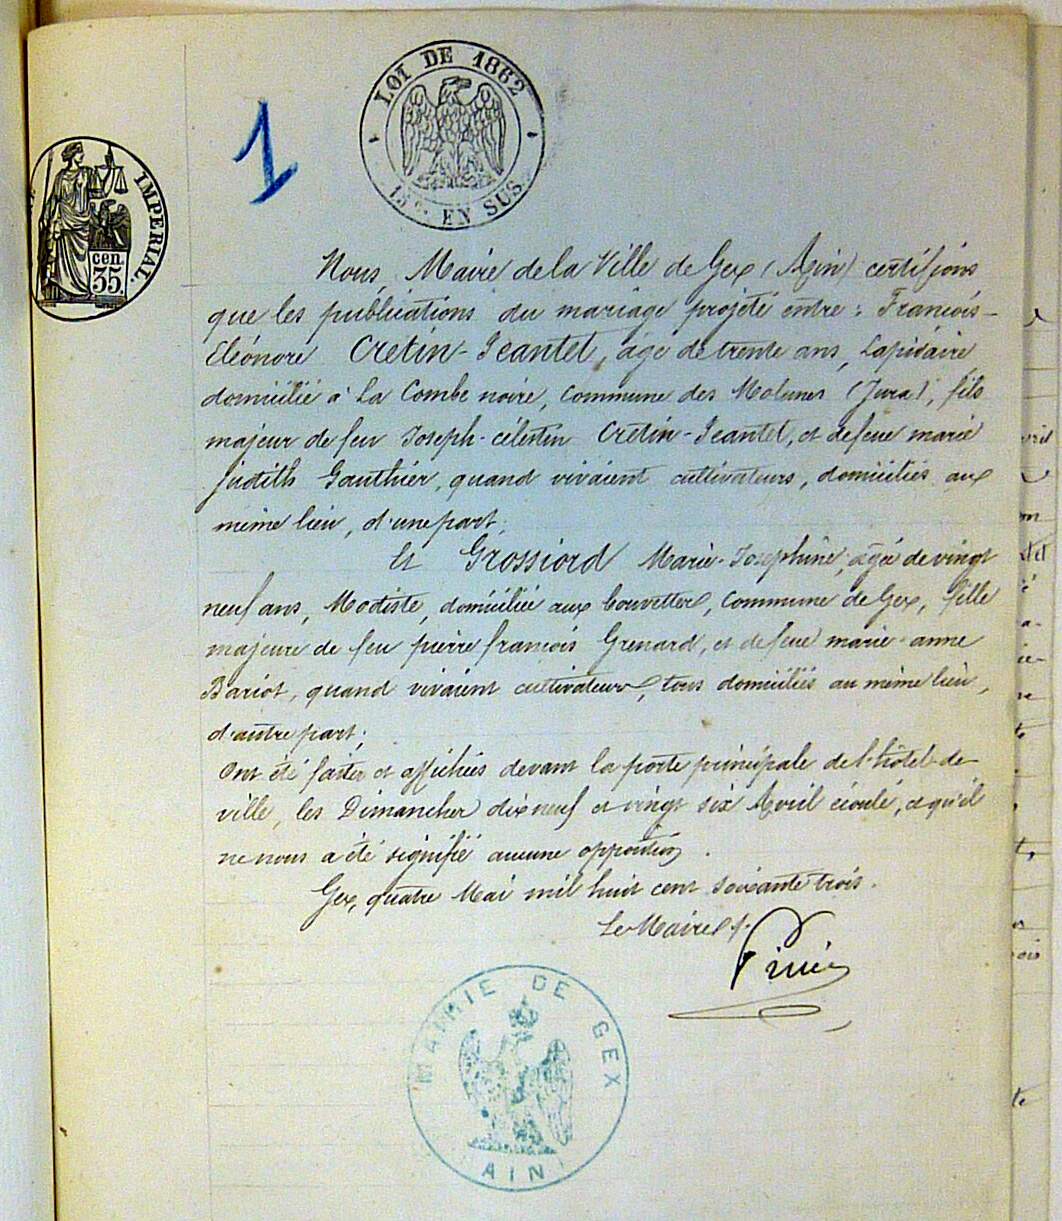 LOI DE 1862
15 c. EN SUS
1
IMPERIAL.
cen.
35.
Nous, Maire de la Ville de Gex (Ain) certifions
que les publications du mariage projeté entre : François-
Eléonore Cretin-Jeantet, agé de trente ans, Lapidaire
domicilié à La Combe noire, Commune des Molunes (Jura), fils
majeur de feu Joseph-célestin Cretin-Jeantet, et de feue marie
judith Gauthier, quand vivaient cultivateurs, domiciliés aux
même lieu, d'une part;
Et Grossiord Marie-Josephine, agée de vingt
neuf ans, Modiste, domiciliée aux , Commune de Gex, fille
majeure de feu pierre françois Grenard, et de feue marie-anne
Bariot, quand vivaient cultivateurs, tous domiciliés au même lieu,
d'autre part;
Ont été faites et affichées devant la porte principale de l'hôtel-de-
ville, les Dimanches dix neuf et vingt six Avril écoulé, et qu'il
ne nous a été signifié aucune opposition.
Gex, quatre Mai mil huit cent soixante trois.
Le Maire
MAIRIE DE GEX
AIN